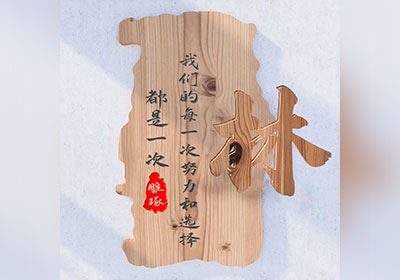 林
我们的每一次努力和选择
都是一次
雕琢